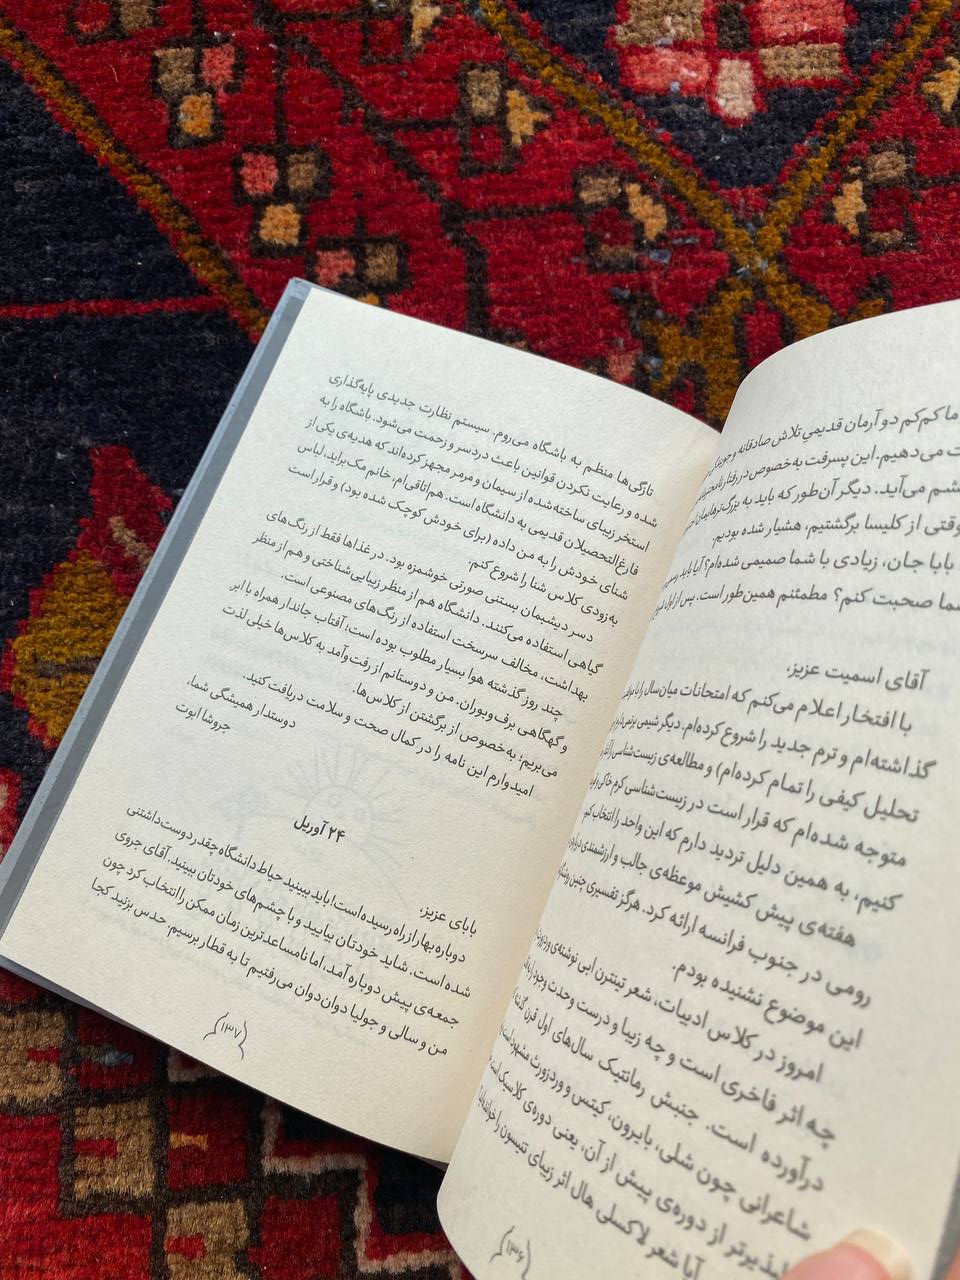 ما کم‌کم دو آرمان قدیمیِ تلاش صادقانه و
می‌دهیم. این پسرفت به‌خصوص در رفتار
چشم می‌آید. دیگر آن‌طور که باید به بزرگ‌ترهایمان
وقتی از کلیسا برگشتیم، هشیار شده بودیم.
بابا جان، زیادی با شما صمیمی شده‌ام؟ آیا باید
شما صحبت کنم؟ مطمئنم همین‌طور است. پس از اول
آقای اسمیت عزیز،
با افتخار اعلام می‌کنم که امتحانات میان‌سال را با
گذاشته‌ام و ترم جدید را شروع کرده‌ام. دیگر شیمی
تحلیل کیفی را تمام کرده‌ام) و مطالعه‌ی زیست‌شناسی را
متوجه شده‌ام که قرار است در زیست‌شناسی کرم خاکی
کنیم، به همین دلیل تردید دارم که این واحد را انتخاب کنم.
هفته‌ی پیش کشیش موعظه‌ی جالب و ارزشمندی درباره‌ی
رومی در جنوب فرانسه ارائه کرد. هرگز تفسیری چنین
این موضوع نشنیده بودم.
امروز در کلاس ادبیات، شعر تینترن ابی نوشته‌ی
چه اثر فاخری است و چه زیبا و درست وحدت وجود را
درآورده است. جنبش رمانتیک سال‌های اول قرن گذشته
شاعرانی چون شلی، بایرون، کیتس و وردزورث مشهود است
از دوره‌ی پیش از آن، یعنی دوره‌ی کلاسیک است.
آیا شعر لاکسلی هال اثر زیبای تنیسون را خوانده‌اید؟
۱۳۶
تازگی‌ها منظم به باشگاه می‌روم. سیستم نظارت جدیدی پایه‌گذاری
شده و رعایت نکردن قوانین باعث دردسر و زحمت می‌شود. باشگاه را به
استخر زیبای ساخته‌شده از سیمان و مرمر مجهز کرده‌اند که هدیه‌ی یکی از
فارغ‌التحصیلان قدیمی به دانشگاه است. هم‌اتاقی‌ام، خانم مک‌براید، لباس
شنای خودش را به من داده (برای خودش کوچک شده بود) و قرار است
به‌زودی کلاس شنا را شروع کنم.
دسر دیشبمان بستنی صورتی خوشمزه بود. در غذاها فقط از رنگ‌های
گیاهی استفاده می‌کنند. دانشگاه هم از منظر زیبایی‌شناختی و هم از منظر
بهداشت، مخالف سرسخت استفاده از رنگ‌های مصنوعی است.
چند روز گذشته هوا بسیار مطلوب بوده است؛ آفتاب جاندار همراه با ابر
و گهگاهی برف‌وبوران. من و دوستانم از رفت‌وآمد به کلاس‌ها خیلی لذت
می‌بریم؛ به‌خصوص از برگشتن از کلاس‌ها.
امیدوارم این نامه را در کمال صحت و سلامت دریافت کنید.
دوستدار همیشگی شما،
جروشا ابوت
۲۴ آوریل
بابای عزیز،
دوباره بهار از راه رسیده است! باید ببینید حیاط دانشگاه چقدر دوست‌داشتنی
شده است. شاید خودتان بیایید و با چشم‌های خودتان ببینید. آقای جروی
جمعه‌ی پیش دوباره آمد، اما نامساعدترین زمان ممکن را انتخاب کرد چون
من و سالی و جولیا دوان‌دوان می‌رفتیم تا به قطار برسیم. حدس بزنید کجا
۱۳۷